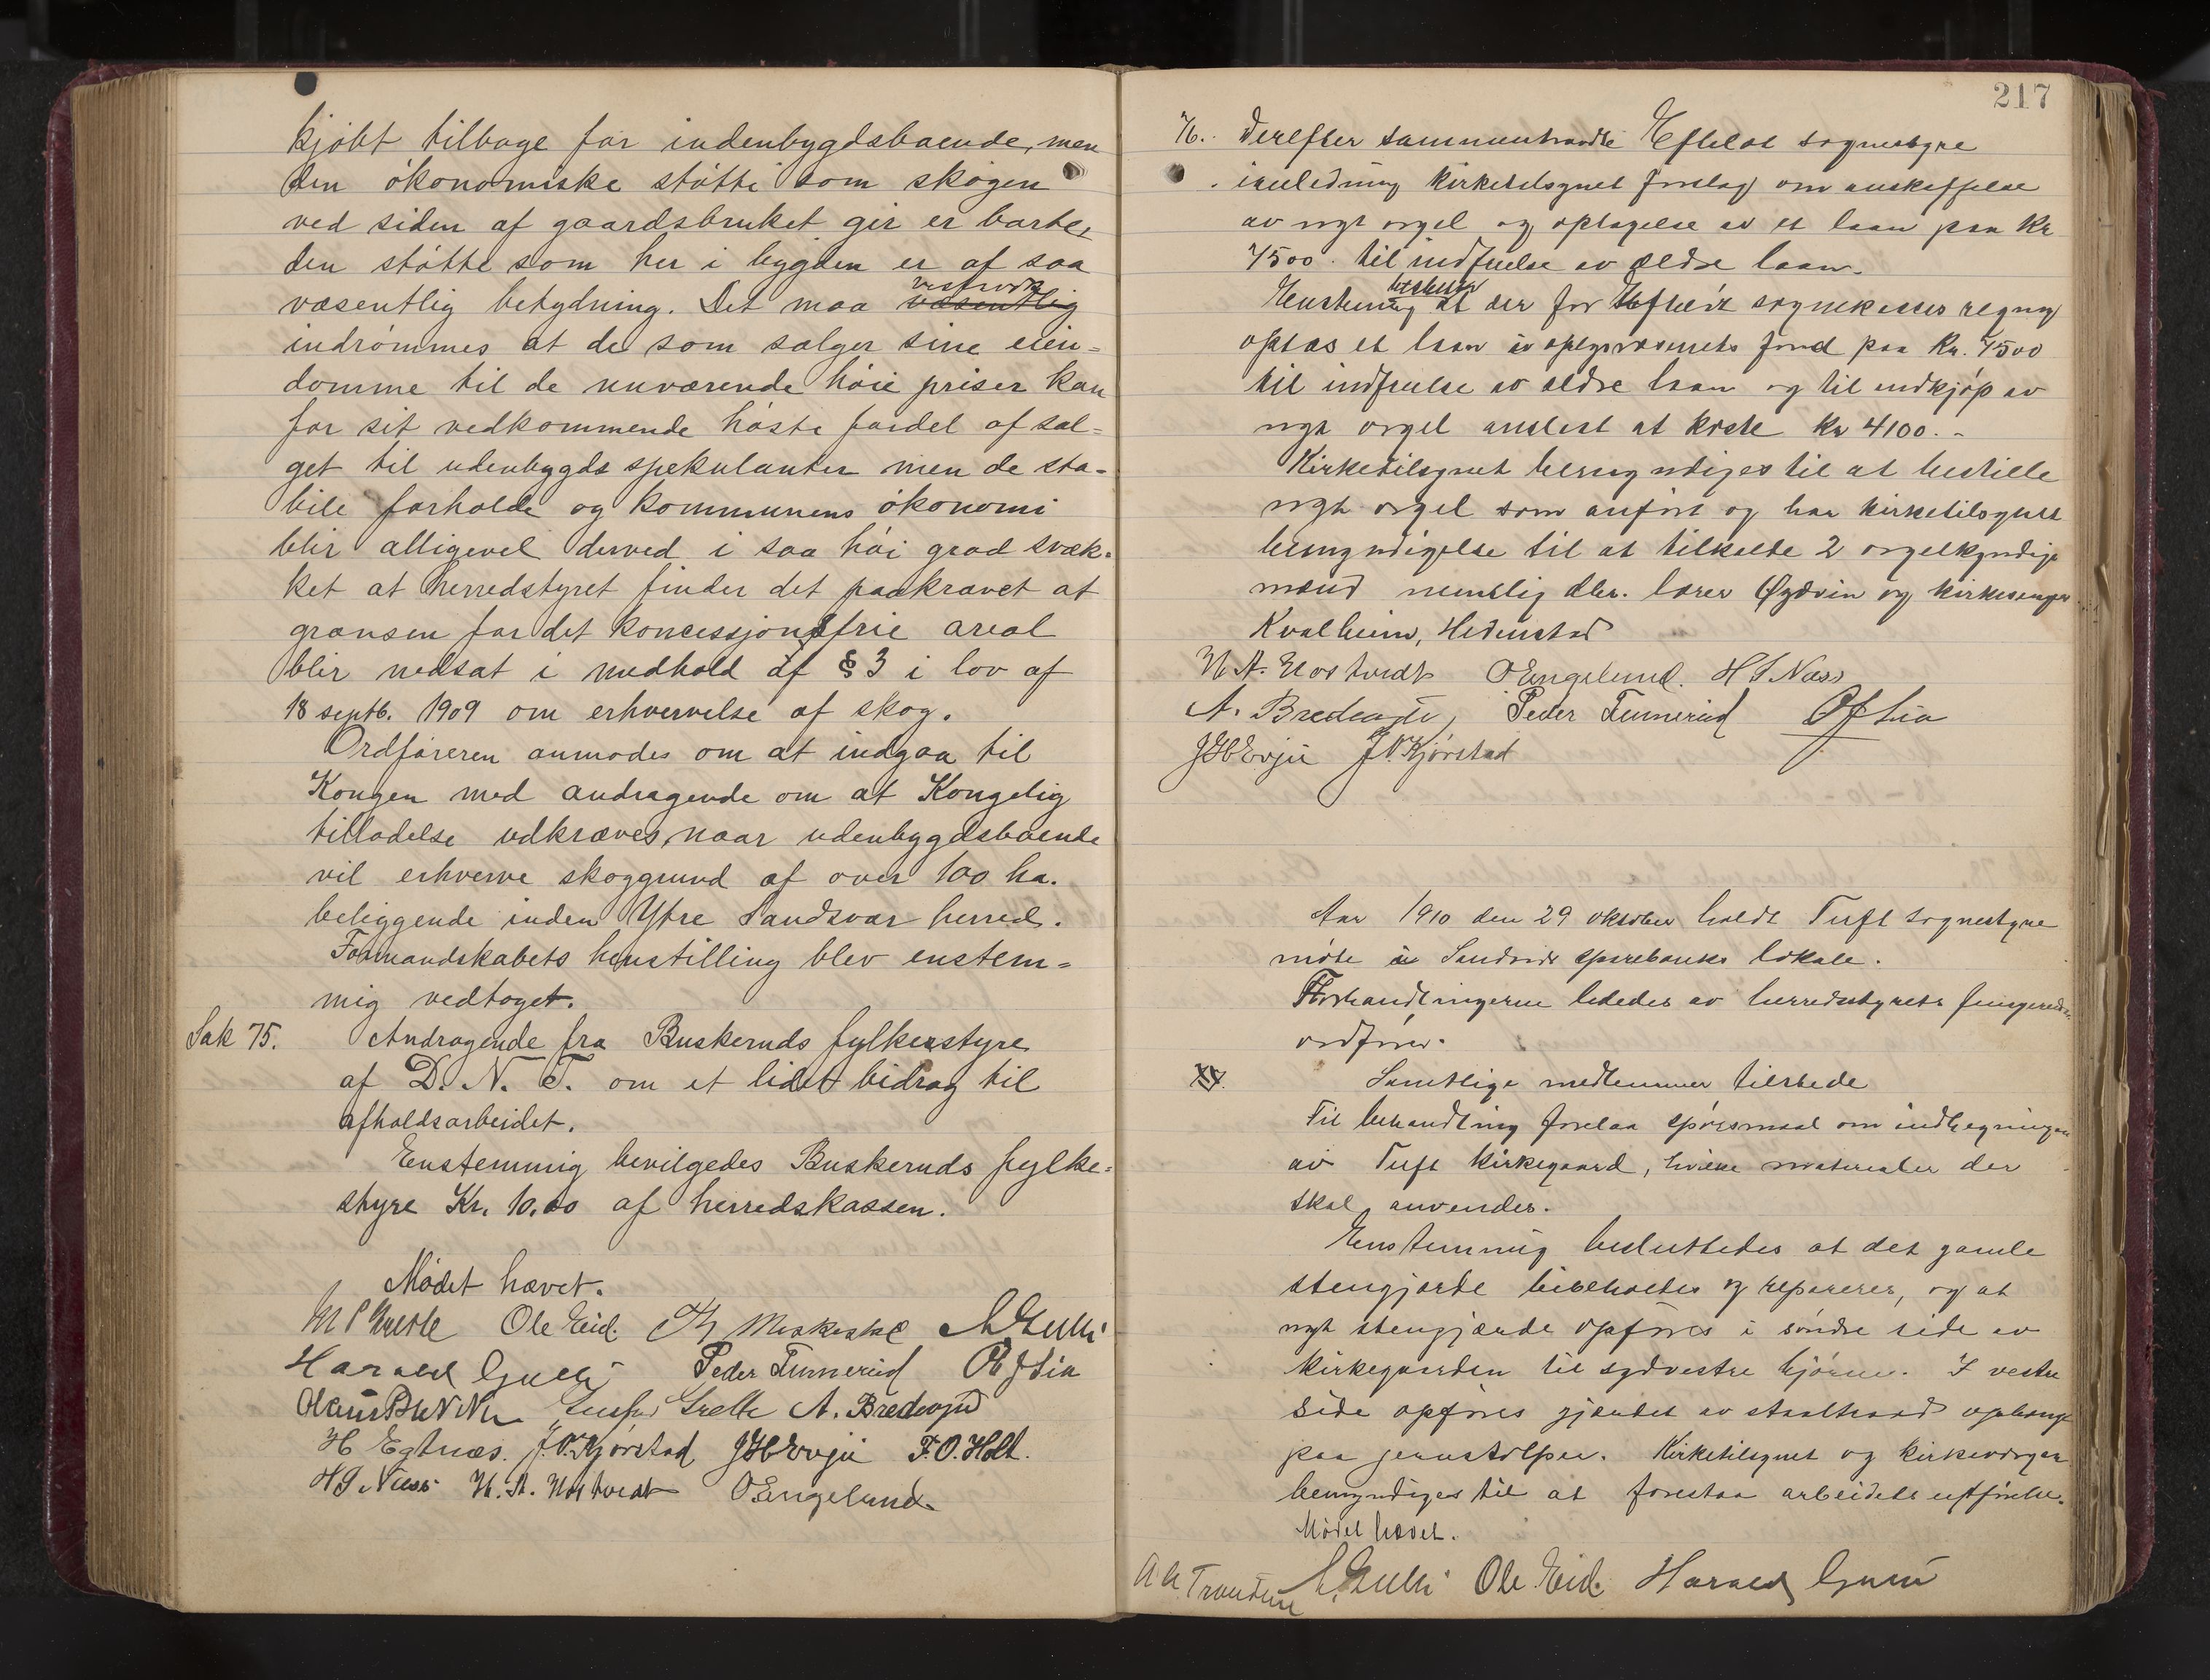 kjøbt tilbage for indenbygdsboende, men
den økonomiske støtte som skogen
ved siden af gaardsbruket gir er borte,
den støtte som her i bygden er af saa
væsentlig betydning. Det maa vistnok væsentlig
indrømmes at de som sælger sine eien=
domme til de nuværende høie priser kan
for sit vedkommende høste fordel af sal=
get til udenbygds spekulanter men de sta=
bile forholde og kommunens økonomi
blir alligevel derved i saa høi grad svæk=
ket at herredstyret finder det paakrævet at
grænsen for det koncessjonsfrie areal
blir nedsat i medhold af § 3 i lov af
18 septb. 1909 om erhvervelse af skog.
Ordføreren anmodes om at indgaa til
Kongen med andragende om at Kongelig
tilladelse udkræves, naar udenbygdsboende
vil erhverve skoggrund af over 100 ha.
beliggende inden Ytre Sandsvær herred.
Formandskabets henstilling blev enstem=
mig vedtaget.
Sak 75. Andragende fra Buskeruds fylkesstyre
af D. N. T. om et lidet bidrag til
afholdsarbeidet.
Enstemmig bevilgedes Buskeruds fylke=
styre Kr. 10.00 af herredskassen.
Mødet hævet.
Ole Eid.
Harald Peder Tumerud O J Lia
A. Bredesen
H Egtnæs. J. N. Kjørstad J H Evju F. O. Holt.
H S Næss H. A. Nostvedt O Engelund.
217
76. Derefter sammentraadte Efteløt sognestyre
i anledning kirketilsynet forslag om anskaffelse
av nyt orgel og optagelse av et laan paa Kr
7500. til indfrielse av ældre laan.
Enstemmig besluttet at der for Efteløt sognekasses regning
optas et laan av oplysvæsenets fond paa Kr. 7500
til indfrielse av ældre laan og til indkjøp av
nyt orgel anslaat at koste Kr 4100.-
Kirketilsynet bemyndiges til at bestille
nyt orgel som anført og har kirketilsynet
bemyndigelse til at tilkalde 2 orgelkyndige
mænd nemlig lærer Øydvin og kirkesanger
Kvalheim, Hedenstad
H. A. Nostvedt O Engelund. H S Næss
A. Peder Tumerud O J Lia
J H Evju J N Kjørstad
Aar 1910 den 29 oktober holdt Tuft sognestyre
møte i Sandsvær sparebanks lokale.
Forhandlingerne lededes av herredsstyrets fungerende
ordfører.
Samtlige medlemmer tilstede
Til behandling forelaa spørsmaal om indhegningen
av Tuft kirkegaard, hvilke materialer der
skal anvendes.
Enstemmig besluttedes at det gamle
stengjærde bibeholdes og repareres, og at
nyt stengjærde opføres i søndre side av
kirkegaarden til sydvestre hjørne. I vestre
side opføres gjærdet av staaltraad ophengt
paa jernstolper. Kirketilsynet og kirkevergen
bemyndiges til at forestaa arbeidets utførelse.
Mødet hævet.
Ole Eid. Harald